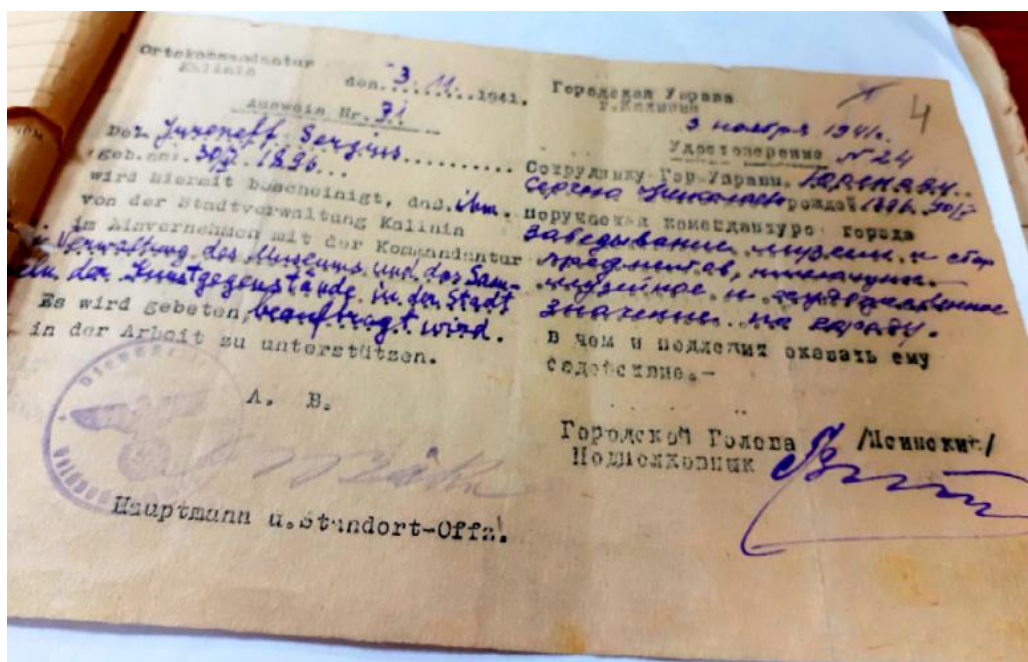 Ortskommandantur
Kalinin
den 3. 11. 1941.
Ausweis Nr. 71
Der Jureneff Sergius
geb. am: 30/ 1896
wird hiermit bescheinigt, daß ihm
von der Stadtverwaltung Kalinin
im Einvernehmen mit der Kommandantur
Verwaltung des Museums und das Sam-
meln der Kunstgegenstände in der Stadt
beauftragt wird.
Es wird gebeten,
in der Arbeit zu unterstützen.
A. B.
Hauptmann u. Standort-Offz.
4
Городская Управа
г. Калинин
3 ноября 1941г.
Удостоверение № 24
Сотруднику Гор. Управы. Юреневу
Сергею рожден 1896
поручается комендатурой города
заведывание музеем и сбор
предметов, имеющих
музейное и художественное
значение по городу.
в чем и подлежит оказать ему
содействие.-
Городской Голова /Ясинский/
Подполковник